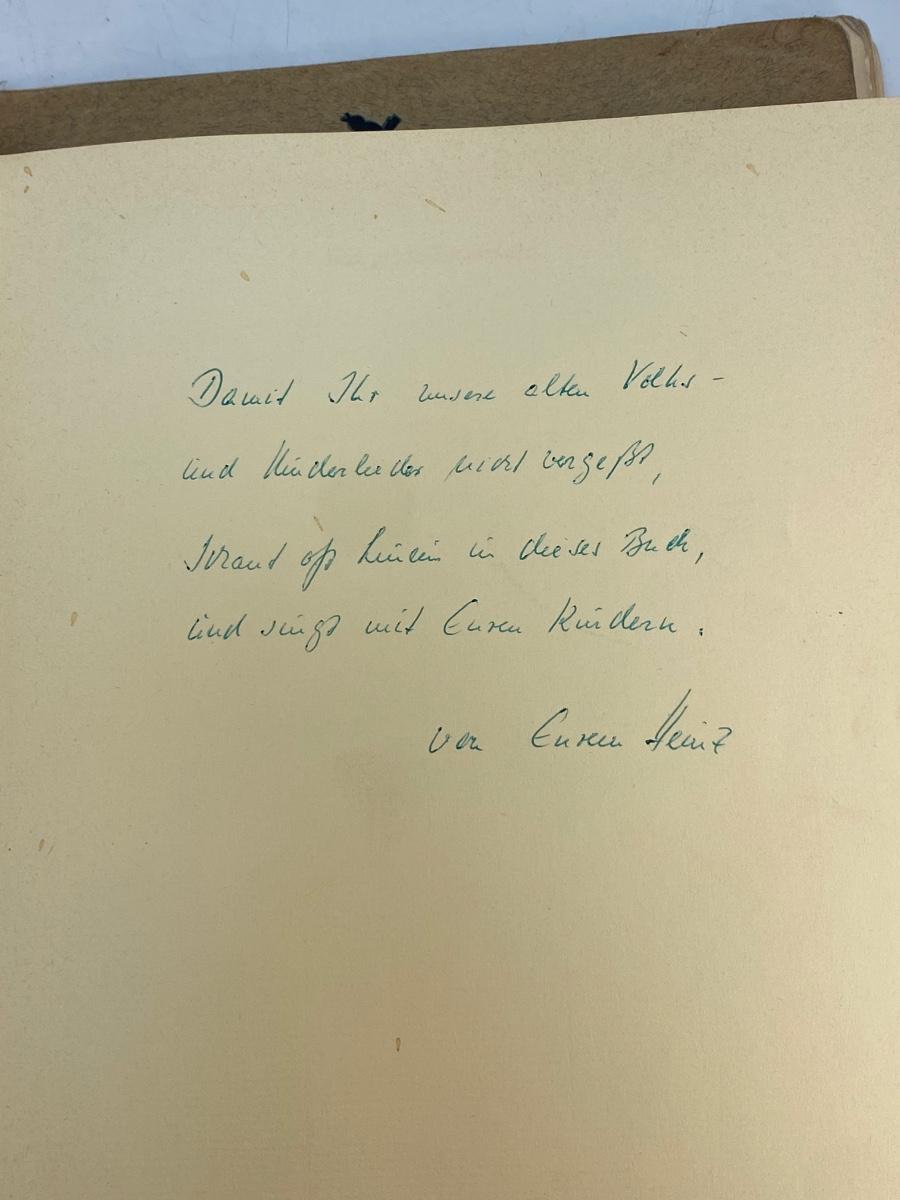 Damit Ihr unsere alten Volks-
und Kinderlieder nicht vergeßt,
schaut oft hinein in dieses Buch,
und singt mit Euren Kindern.
von Eurem Heinz